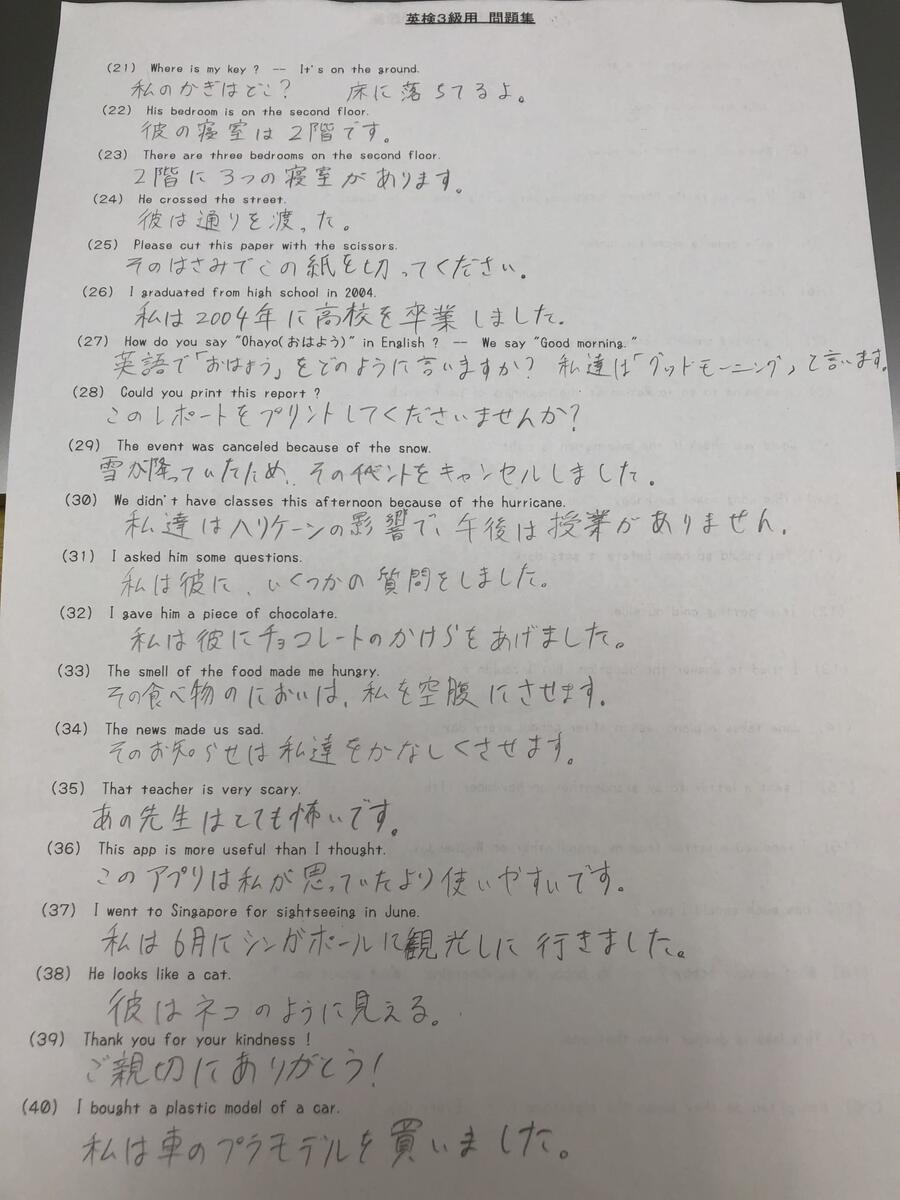 英検3級用 問題集
(21) Where is my key ? -- It's on the ground.
私のかぎはどこ? 床に落ちてるよ。
(22) His bedroom is on the second floor.
彼の寝室は2階です。
(23) There are three bedrooms on the second floor.
2階に3つの寝室があります。
(24) He crossed the street.
彼は通りを渡った。
(25) Please cut this paper with the scissors.
そのはさみでこの紙を切ってください。
(26) I graduated from high school in 2004.
私は2004年に高校を卒業しました。
(27) How do you say "Ohayo(おはよう)" in English ? -- We say "Good morning."
英語で「おはよう」をどのように言いますか? 私達は「グッドモーニング」と言います。
(28) Could you print this report ?
このレポートをプリントしてくださいませんか?
(29) The event was canceled because of the snow.
雪が降っていたため、そのイベントをキャンセルしました。
(30) We didn't have classes this afternoon because of the hurricane.
私達はハリケーンの影響で、午後は授業がありません。
(31) I asked him some questions.
私は彼に、いくつかの質問をしました。
(32) I gave him a piece of chocolate.
私は彼にチョコレートのかけらをあげました。
(33) The smell of the food made me hungry.
その食べ物のにおいは、私を空腹にさせます。
(34) The news made us sad.
そのお知らせは私達をかなしくさせます。
(35) That teacher is very scary.
あの先生はとても怖いです。
(36) This app is more useful than I thought.
このアプリは私が思っていたより使いやすいです。
(37) I went to Singapore for sightseeing in June.
私は6月にシンガポールに観光しに行きました。
(38) He looks like a cat.
彼はネコのように見える。
(39) Thank you for your kindness !
ご親切にありがとう!
(40) I bought a plastic model of a car.
私は車のプラモデルを買いました。